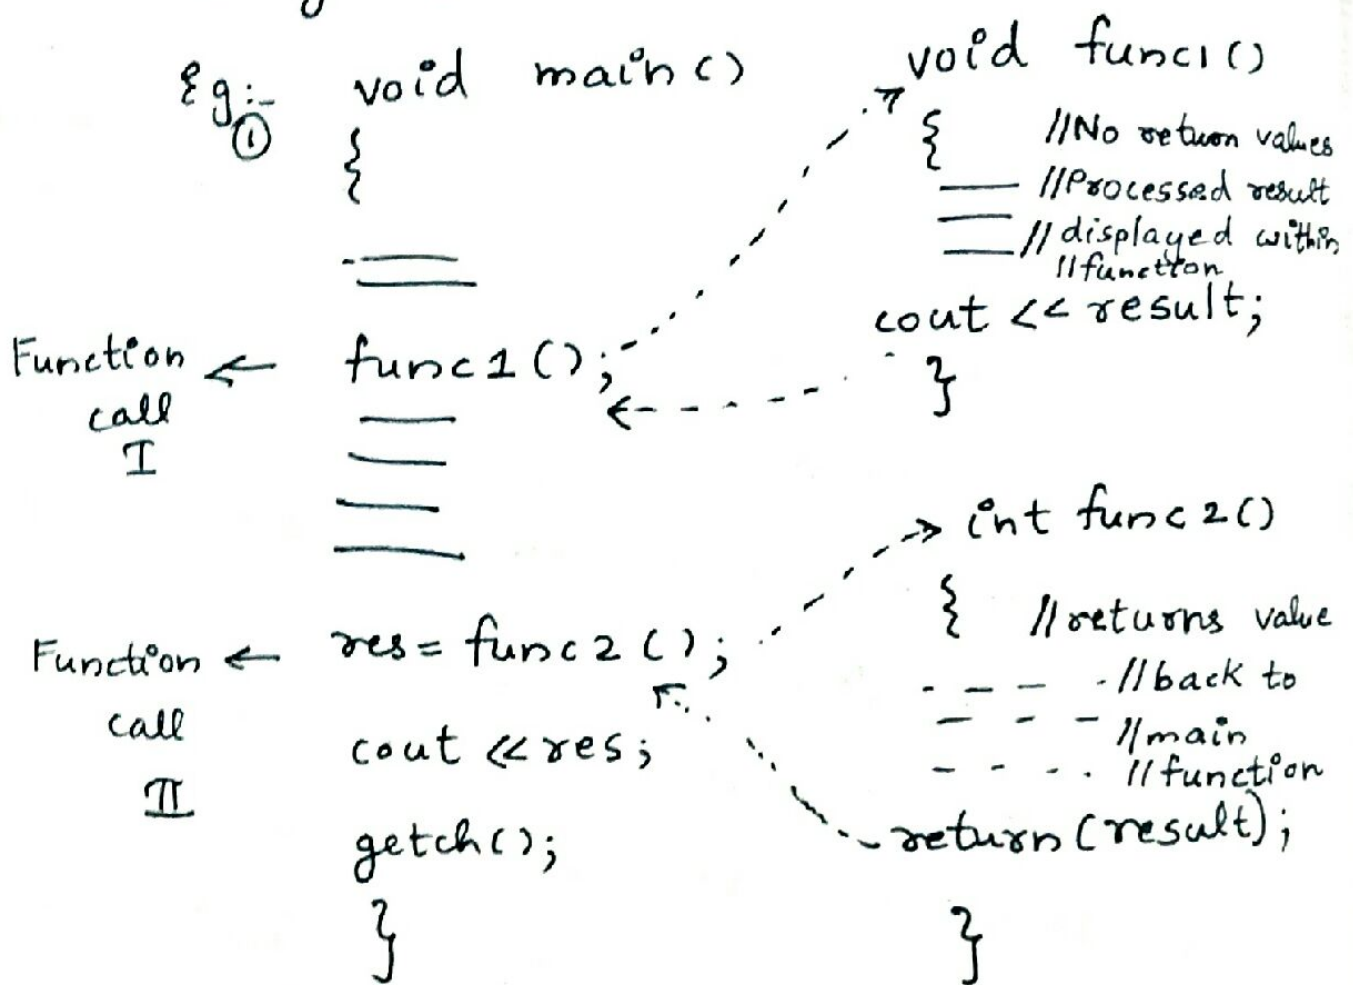 Eg:-
①
void main()
{
func1();
Function
call
I
res = func2();
Function
call
II
cout << res;
getch();
}
void func1()
{ //No return values
//Processed result
//displayed within
//function
cout << result;
}
int func2()
{ //returns value
//back to
//main
//function
return(result);
}